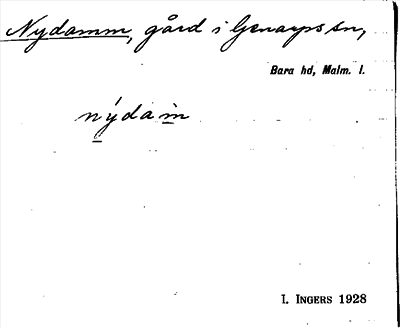 Nydamm, gård i Genarps sn,
Bara hd, Malm. l.
nýdam̀
I. INGERS 1928